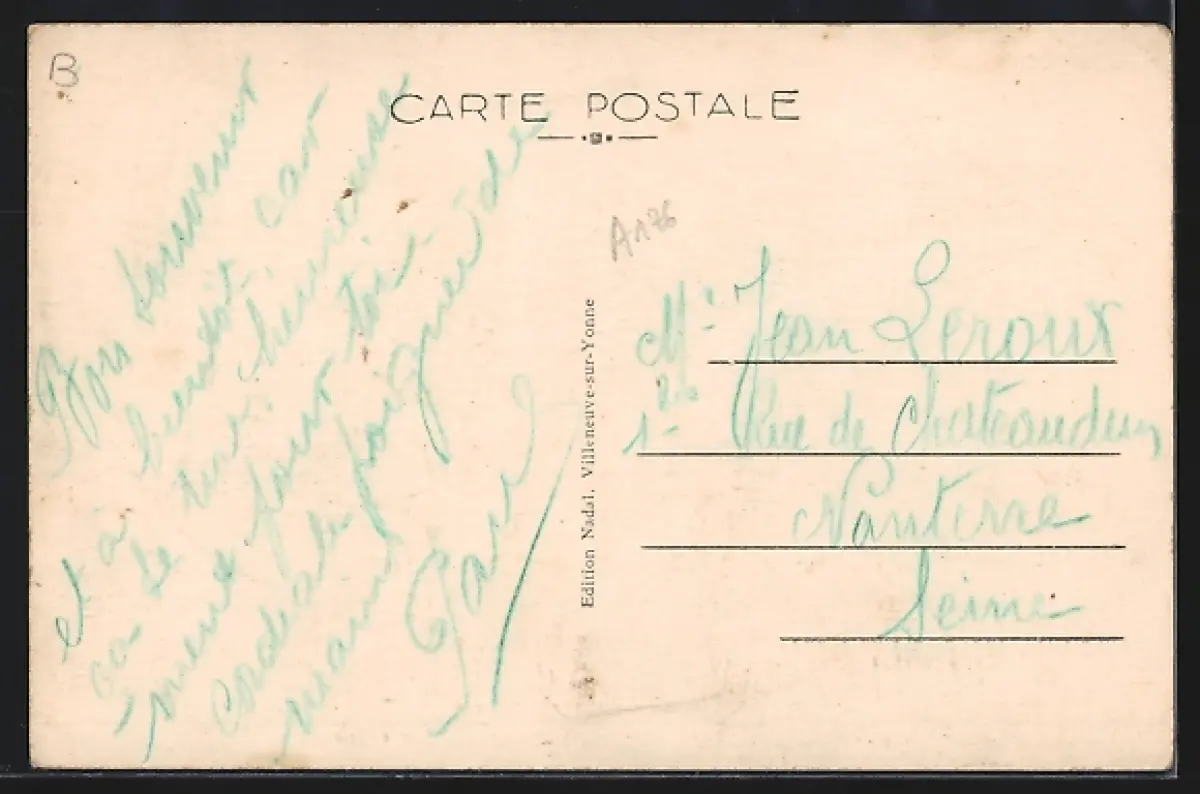 B
CARTE POSTALE
A176
Bon souvenir
et à bientôt car
ca se tire. heureuse
ment pour toi.
Cordiale poignée de
main
Paul
Edition Nadal, Villeneuve-sur-Yonne
Mr Jean Leroux
1 bis Rue de Chateaudun
Nanterre
Seine